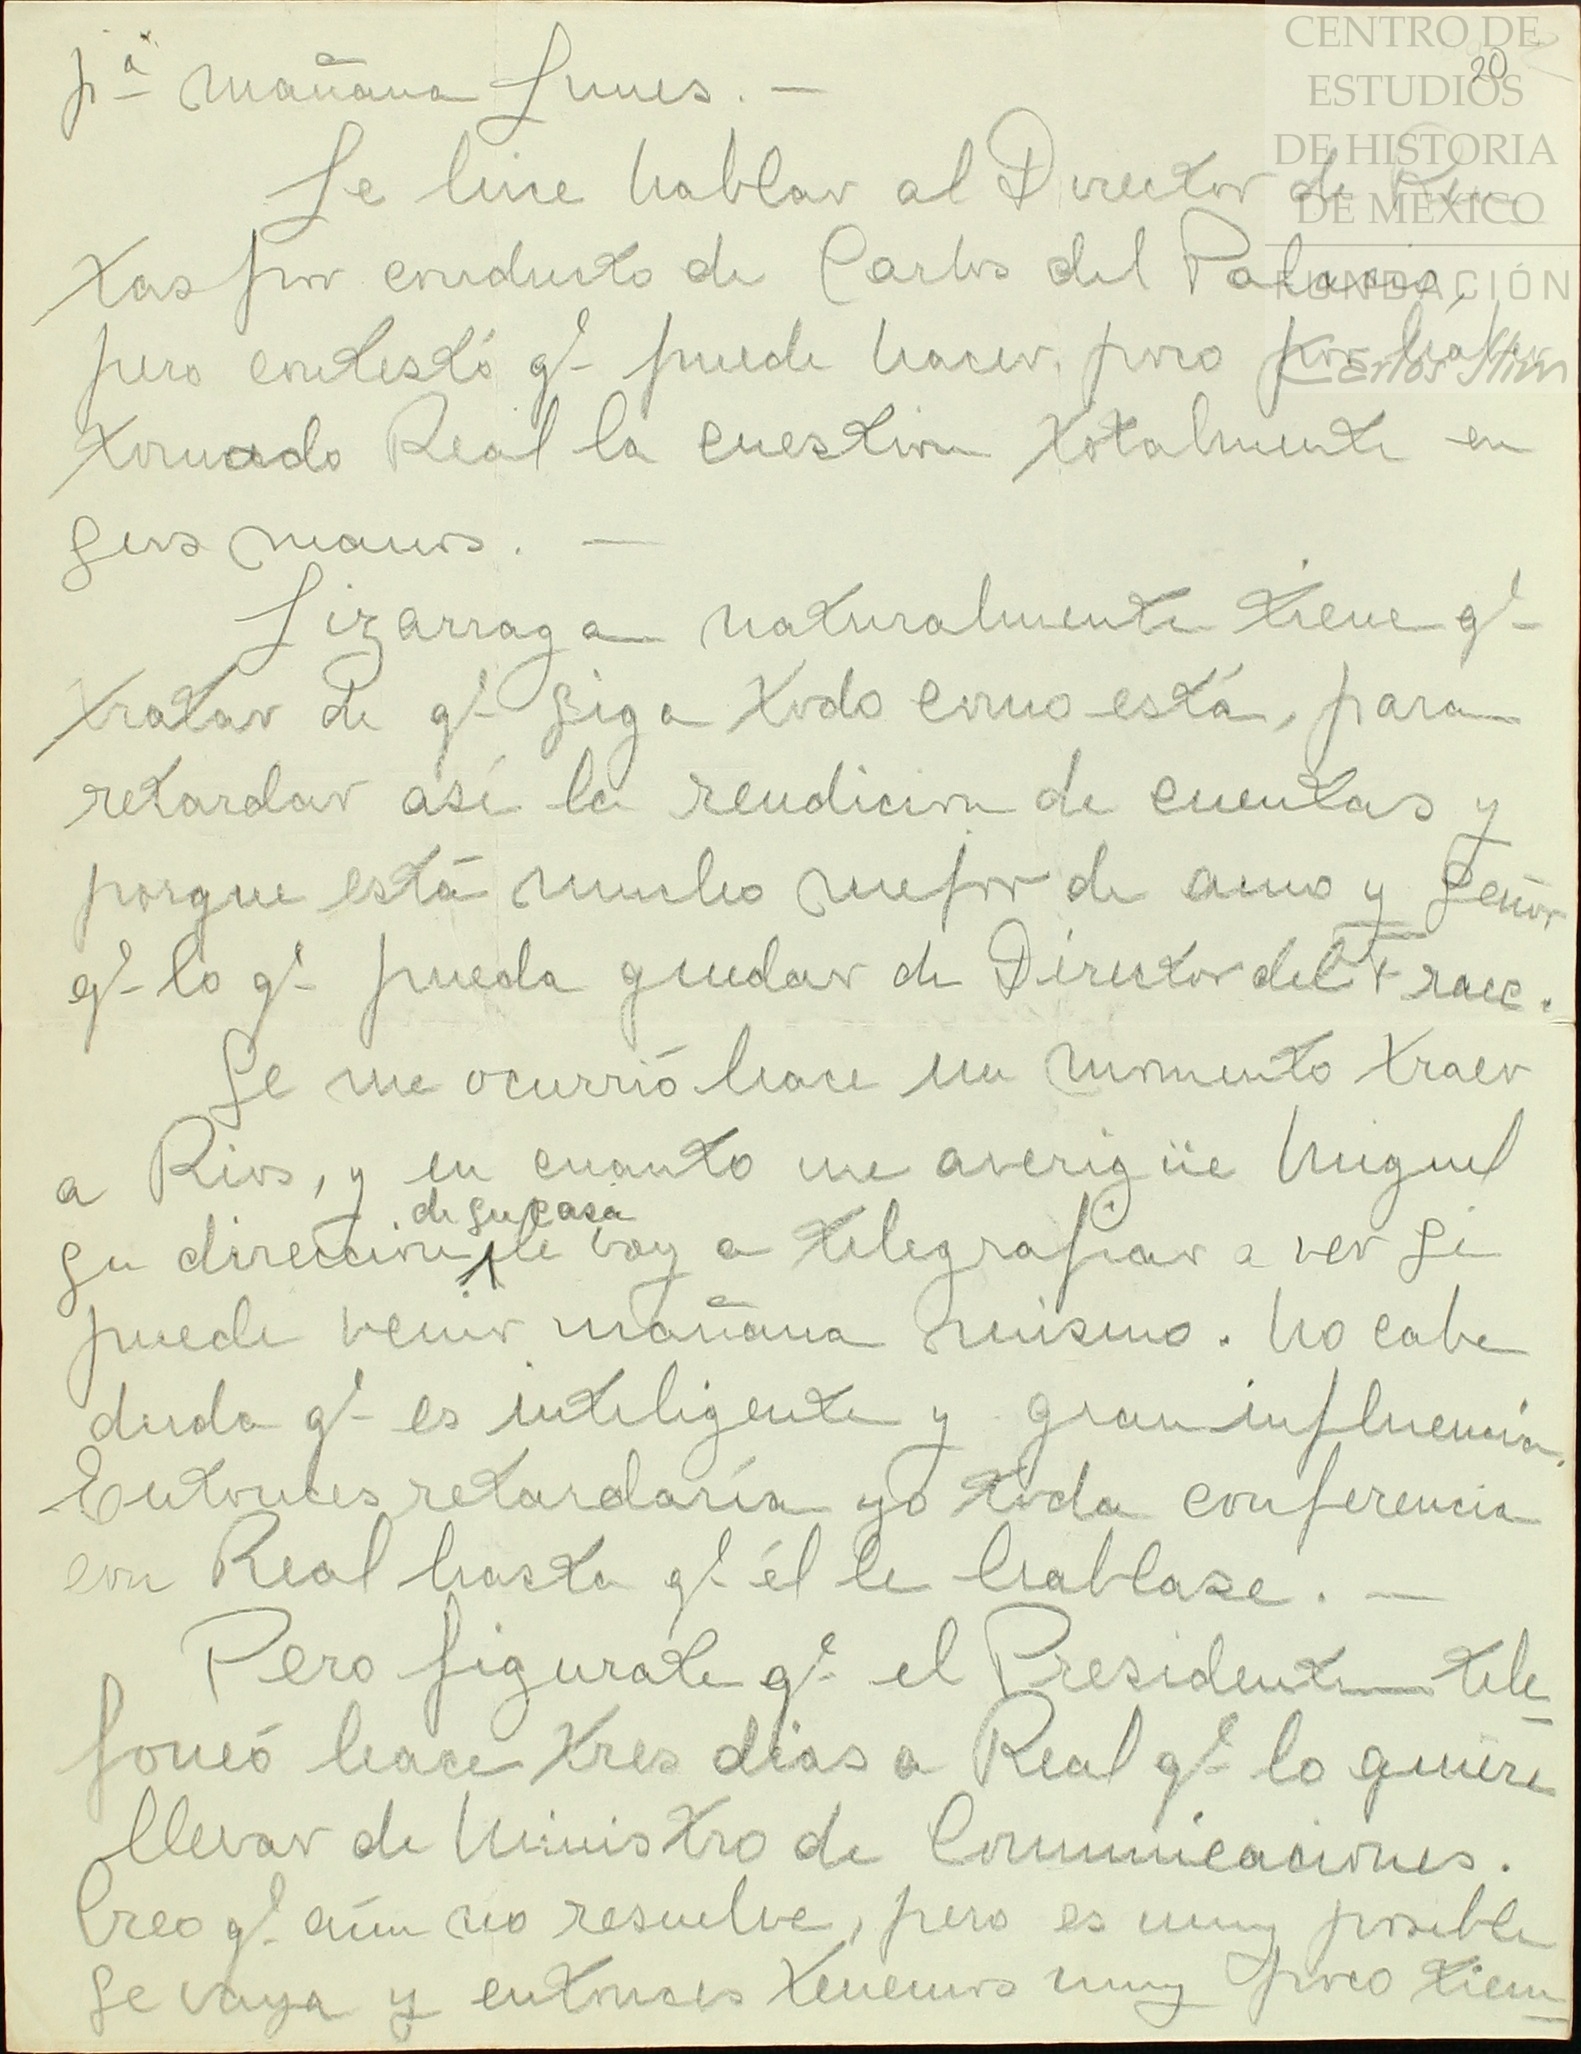 20
CENTRO DE
ESTUDIOS
DE HISTORIA
DE MÉXICO
FUNDACIÓN
Carlos Slim
pª mañana Lunes. —
Le hice hablar al Director de Ren
tas por conducto de Carlos del Palacio,
pero contestó qᵉ puede hacer poco por haber
tomado Real la cuestion totalmente en
sus manos. —
Lizarraga naturalmente tiene qᵉ
tratar de qᵉ siga todo como está, para
retardar así la rendicion de cuentas y
porque está mucho mejor de amo y señor
qᵉ lo qᵉ pueda quedar de Director del Fracc.
Se me ocurrió hace un momento traer
a Rios, y en cuanto me averigüe Miguel
su direccion de su casa le voy a telegrafiar a ver si
puede venir mañana mismo. No cabe
duda qᵉ es inteligente y gran influencia.
Entonces retardaría yo toda conferencia
con Real hasta qᵉ él le hablase. —
Pero figurate qᵉ el Presidente tele
foneó hace tres dias a Real qᵉ lo quiere
llevar de Ministro de Comunicaciones.
Creo qᵉ aún no resuelve, pero es muy posible
se vaya y entonces tenemos muy poco tiem